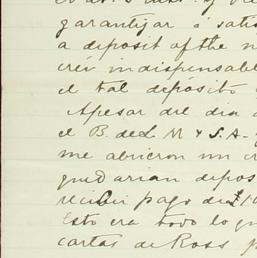 garantizar ó satis
a deposit of the n
creí indispensable
el tal depósito
Apesar del dia
el B. de L. M & S. A.
me abrieron un cr
quedarian depos
recibir pago de £10
Esto era todo lo qu
cartas de Ross p